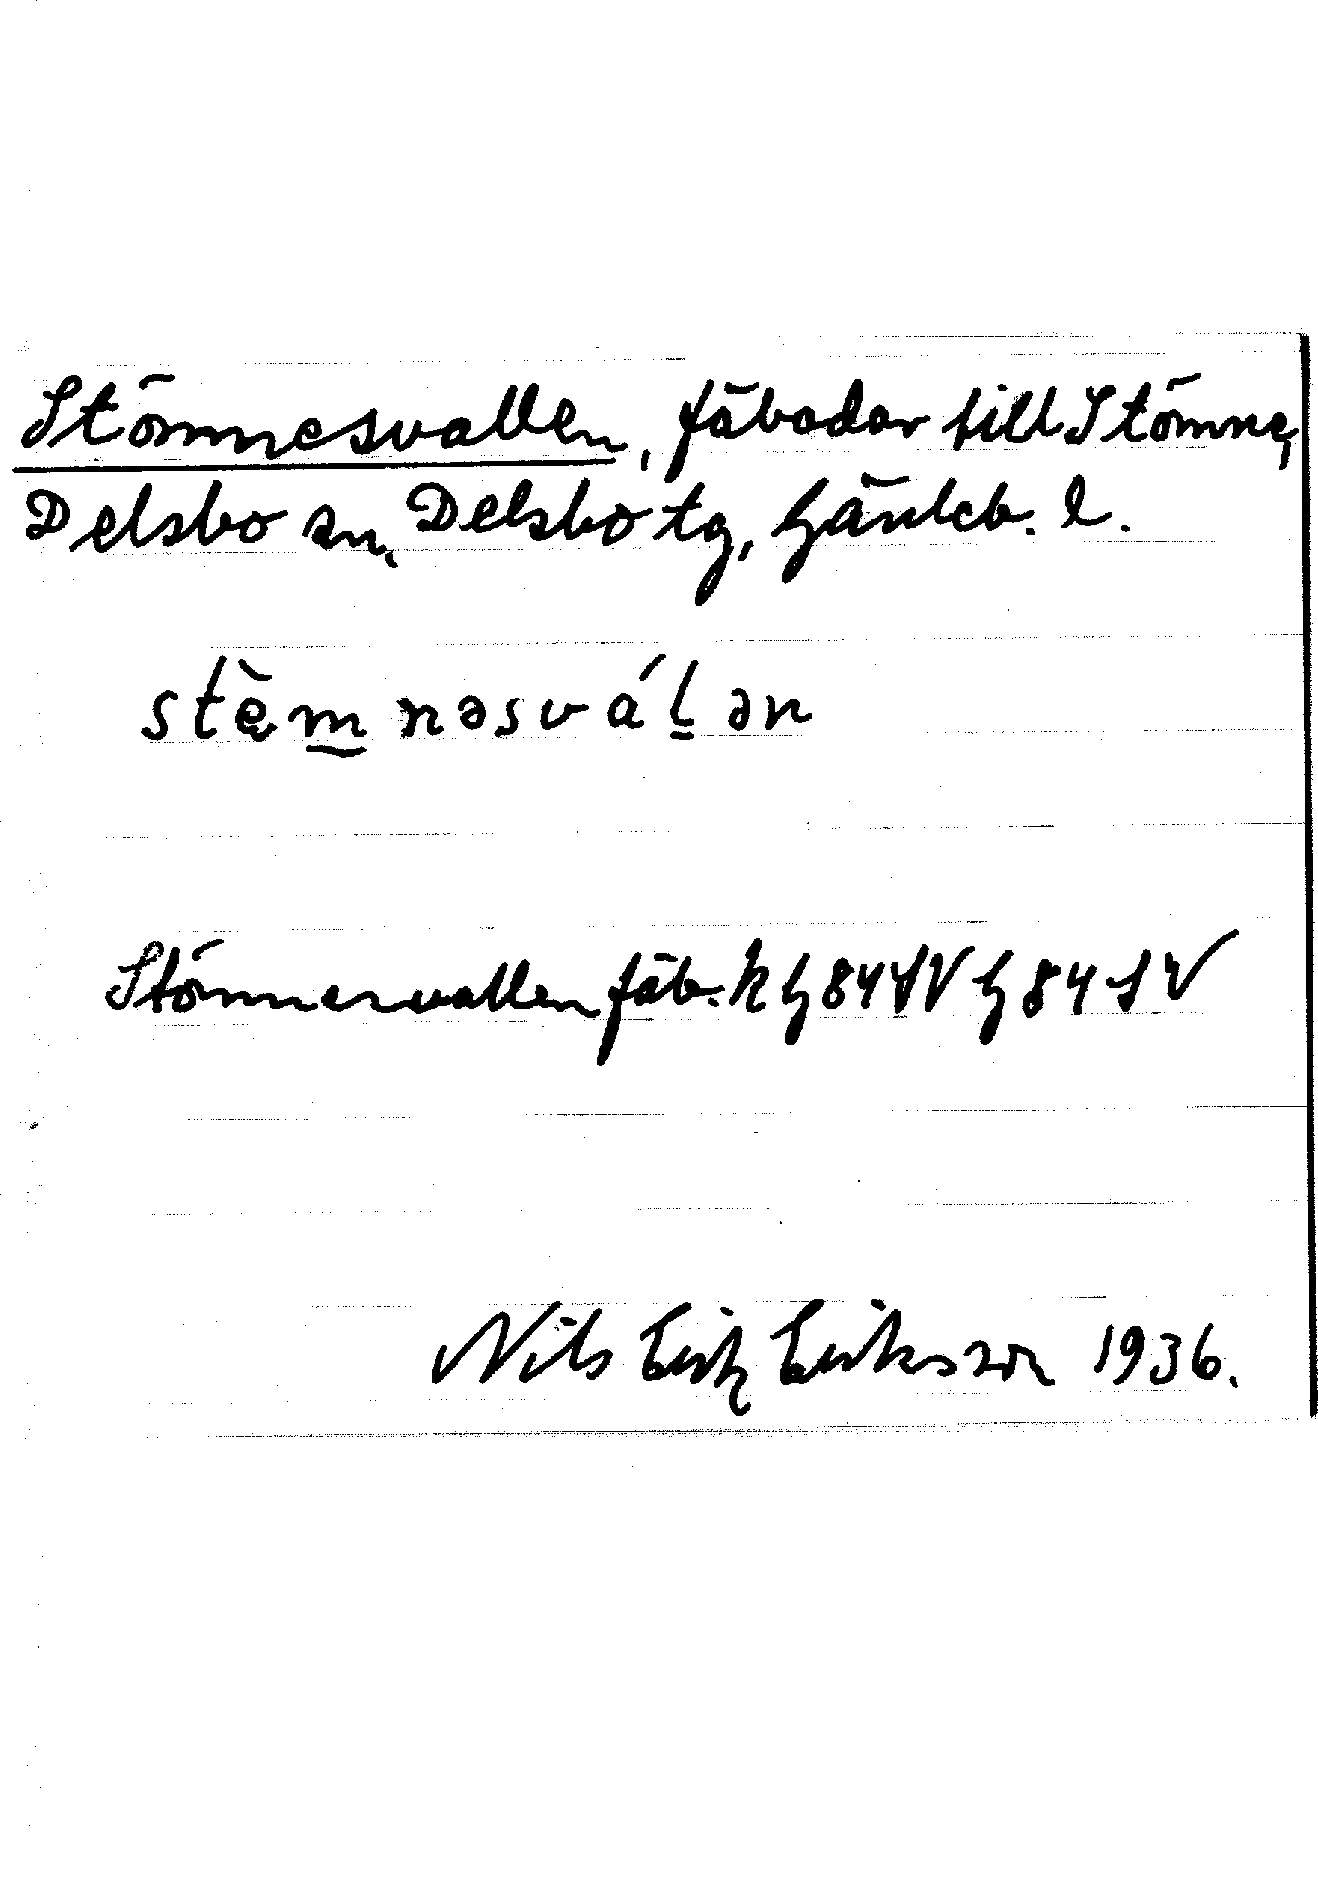 Stömnesvallen, fäbodar till Stömne,
Delsbo sn, Delsbo tg, Gävleb. l.
stèm̲nəsvál̲ən
Stömnesvallen fäb. K G 84 SV G 84 SV
Nils Erik Eriksson 1936.